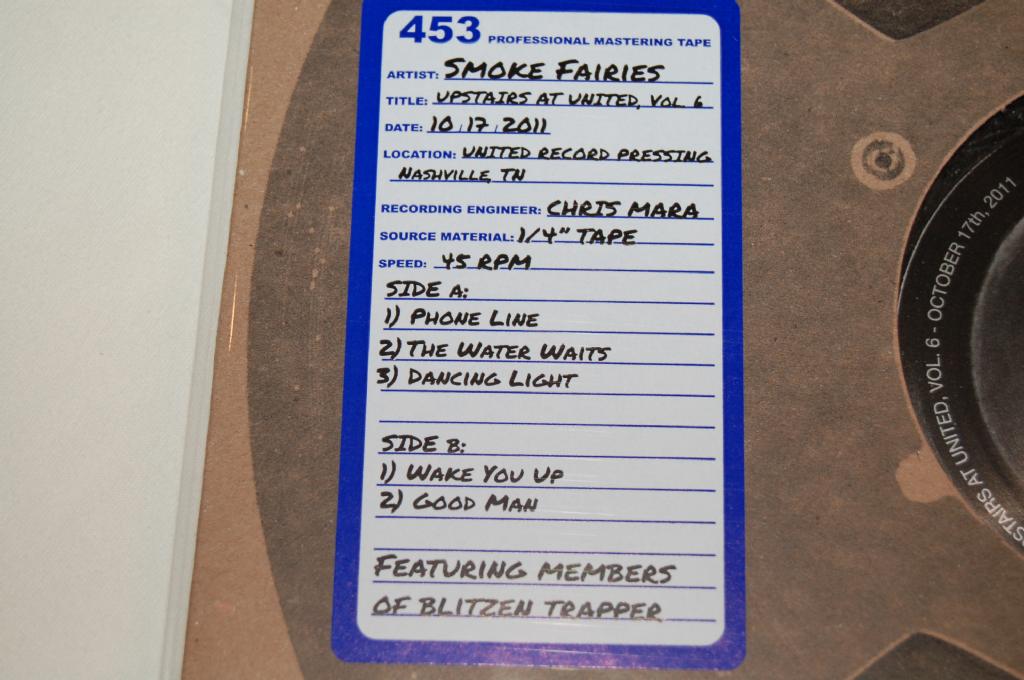 453 PROFESSIONAL MASTERING TAPE
ARTIST: SMOKE FAIRIES
TITLE: UPSTAIRS AT UNITED, VOL. 6
DATE: 10/17/2011
LOCATION: UNITED RECORD PRESSING
NASHVILLE, TN
RECORDING ENGINEER: CHRIS MARA
SOURCE MATERIAL: 1/4" TAPE
SPEED: 45 RPM
SIDE A:
1) PHONE LINE
2) THE WATER WAITS
3) DANCING LIGHT
SIDE B:
1) WAKE YOU UP
2) GOOD MAN
FEATURING MEMBERS
OF BLITZEN TRAPPER
STAIRS AT UNITED, VOL. 6 - OCTOBER 17th, 2011